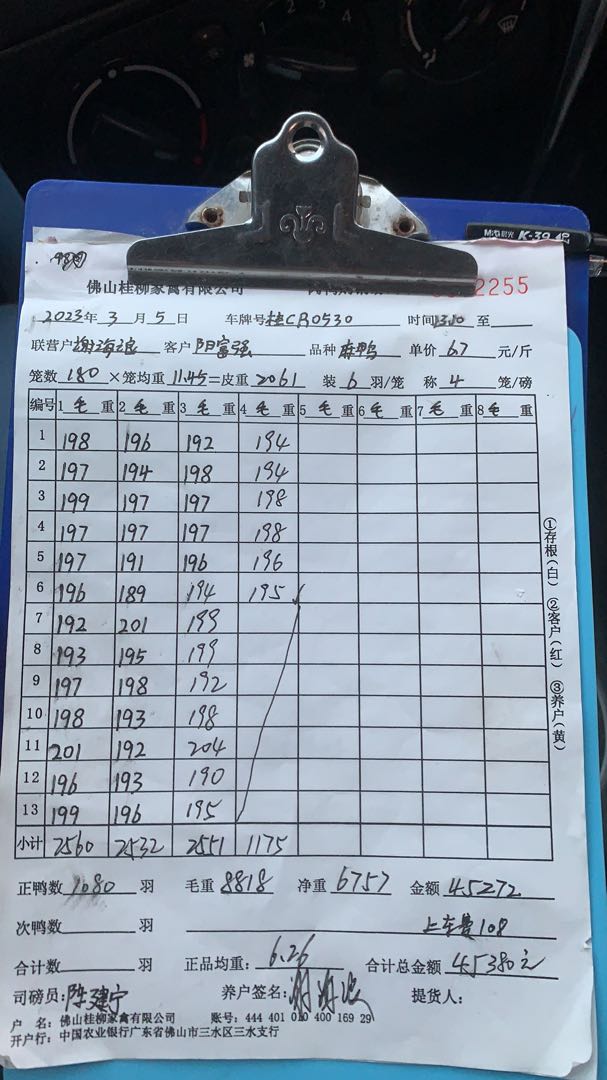 佛山桂柳家禽有限公司
2255
2023年 3 月 5 日 车牌号 桂CR0530 时间 13.10 至
联营户 谢海浪 客户 阳富强 品种 麻鸭 单价 6.7 元/斤
笼数 180 ×笼均重 11.45=皮重 2061 装 6 羽/笼 称 4 笼/磅
编号 1 毛 重 2 毛 重 3 毛 重 4 毛 重 5 毛 重 6 毛 重 7 毛 重 8 毛 重
1 198 196 192 194
2 197 194 198 194
3 199 197 197 198
4 197 197 197 198
5 197 191 196 196
6 196 189 194 195
7 192 201 199
8 193 195 199
9 197 198 192
10 198 193 198
11 201 192 204
12 196 193 190
13 199 196 195
小计 2560 2532 2551 1175
①存根(白) ②客户(红) ③养户(黄)
正鸭数 1080 羽 毛重 8818 净重 6757 金额 45272
次鸭数 羽 上车费108
合计数 羽 正品均重: 6.26 合计总金额 45380元
司磅员: 陈建宁 养户签名: 谢海浪 提货人:
户 名: 佛山桂柳家禽有限公司 账号: 444 401 010 400 169 29
开户行: 中国农业银行广东省佛山市三水区三水支行
MG晨光 K-39